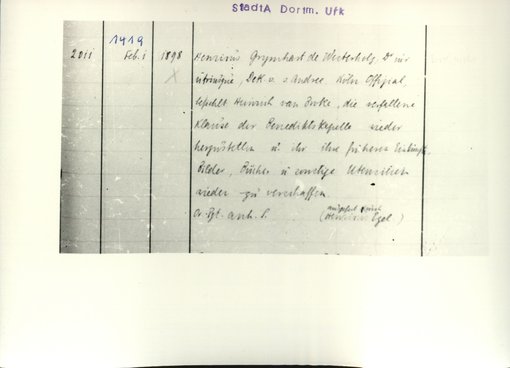 StadtA Dortm. Urk
2011 1419 Feb. 1 1898 Henricus Grymhart de Westerholz, Dr iur
utriusque, Dek. v. s. Andree Köln Offizial
befiehlt Heinrich van, die verfallene
Klause der Benediktskapelle wieder
herzustellen u. ihr ihre früheren Einkünfte,
Bilder, Bücher u. sonstige Utensilien
wieder zu verschaffen.
Or. Pgt. anh. S.